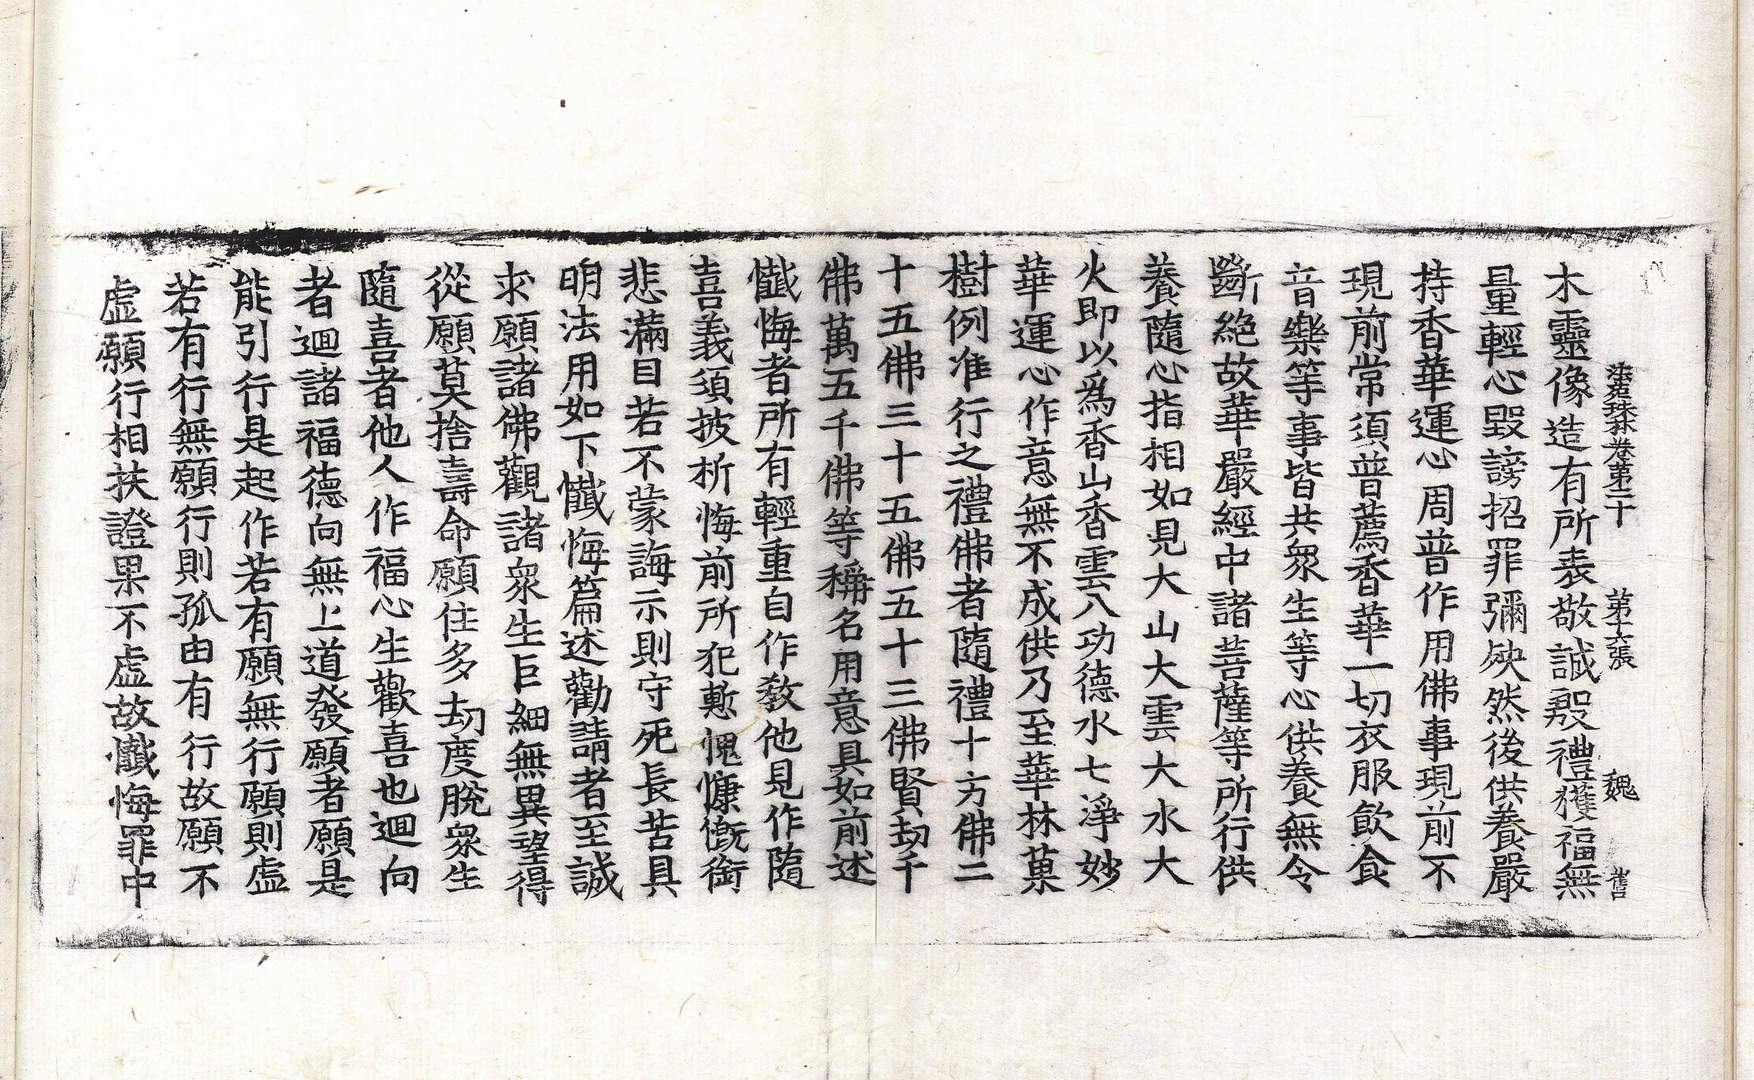 法苑珠林卷第二十 第十六張 魏
木靈像造有所表敬誠殷禮獲福無
量輕心毀謗招罪彌殃然後供養嚴
持香華運心周普作用佛事現前不
現前常須普薦香華一切衣服飮食
音樂等事皆共衆生等心供養無令
斷絶故華嚴經中諸菩薩等所行供
養隨心指相如見大山大雲大水大
火即以爲香山香雲八功德水七淨妙
華運心作意無不成供乃至華林菓
樹例准行之禮佛者隨禮十方佛二
十五佛三十五佛五十三佛賢劫千
佛萬五千佛等稱名用意具如前述
懺悔者所有輕重自作敎他見作隨
喜義須披析悔前所犯慙愧慷慨銜
悲滿目若不蒙誨示則守死長苦具
明法用如下懺悔篇述勸請者至誠
求願諸佛觀諸衆生巨細無異望得
從願莫捨壽命願住多劫度脫衆生
隨喜者他人作福心生歡喜也迴向
者迴諸福德向無上道發願者願是
能引行是起作若有願無行願則虛
若有行無願行則孤由有行故願不
虛願行相扶證果不虛故懺悔罪中